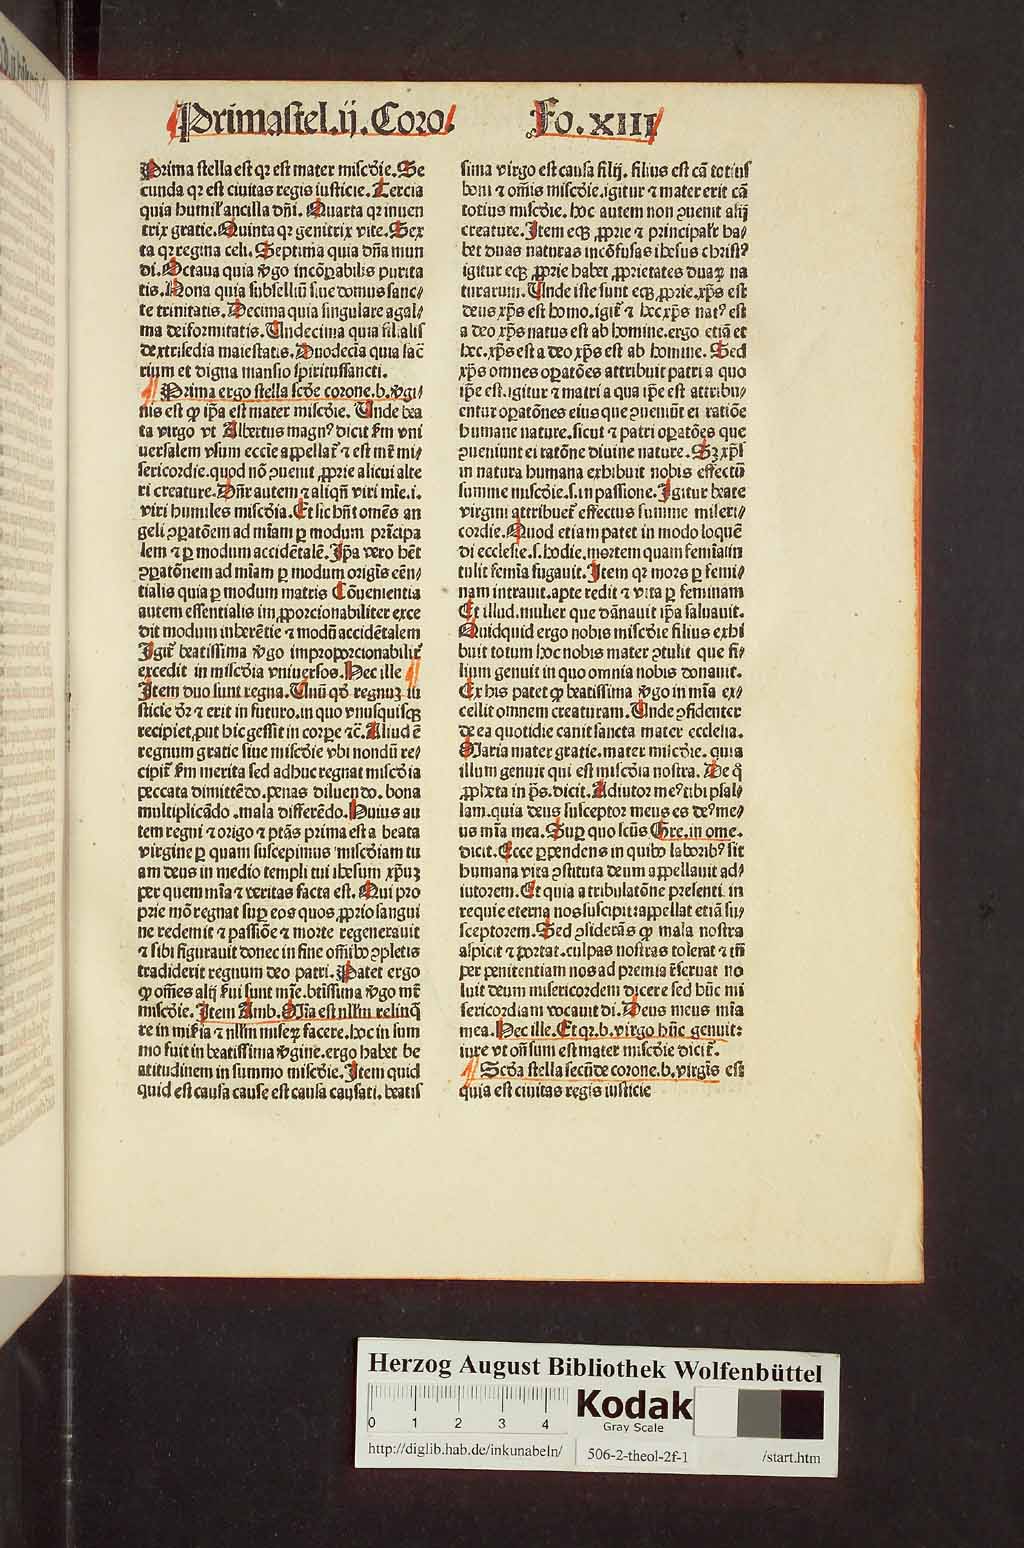 Prima stel. ij. Coro. Fo. XIII
Prima stella est qr est mater miscd̓ie. Se
cunda qr est ciuitas regis iusticie. Tercia
quia humil̓ ancilla dn̄i. Quarta qr inuen
trix gratie. Quinta qr genitrix vite. Sex
ta qr regina celi. Septima quia dn̄a mun
di. Octaua quia v̓go incōꝑabilis purita
tis. Nona quia subselliū siue domus sanc⸗
te trinitatis. Decima quia singulare agal⸗
ma deiformitatis. Undecima quia filialis
dextrisedia maiestatis. Duodecīa quia sac̄
rium et digna mansio spiritussancti.
¶ Prima ergo stella scd̓e corone .b. v̓gi⸗
nis est ꝙ ip̄a est mater miscd̓ie. Unde bea
ta virgo vt Albertus magnꝰ dicit ẜm vni
uersalem vsum eccīe appellat᷑ ⁊ est mr̄ mi⸗
sericordie. quod nō ꝯuenit ꝓprie alicui alte
ri creature. Dn̄r autem ⁊ aliqn̄ viri mīe .i.
viri humiles miscd̓ia. Et sic hn̄t omēs an
geli ꝯꝑatōem ad mīam ꝑ modum prīcipa
lem ⁊ ꝑ modum accidētalē. Ip̄a vero hēt
ꝯꝑatōnem ad mīam ꝑ modum origīs eēn⸗
tialis quia ꝑ modum matris Cōuenientia
autem essentialis imꝓporcionabiliter exce
dit modum inherētie ⁊ modū accidētalem
Igit᷑ beatissima v̓go improporcionabilit᷑
excedit in miscd̓ia vniuersos. Hec ille ¶
Item duo sunt regna. Unū qd̓ regnuꝫ iu
sticie dr̄ ⁊ erit in futuro. in quo vnusquisqꝫ
recipiet, put hic gessit in corpe ⁊c̄. Aliud ē
regnum gratie siue miscd̓ie vbi nondū re⸗
cipit᷑ ẜm merita sed adhuc regnat miscd̓ia
peccata dimittēdo. penas diluendo. bona
multiplicādo. mala differēdo. Huius au
tem regni ⁊ origo ⁊ ptās prima est a beata
virgine ꝑ quam suscepimus miscd̓iam tu
am deus in medio templi tui ihesum xp̄uꝫ
per quem mīa ⁊ veritas facta est. Qui pro
prie mō regnat suꝑ eos quos ꝓprio sangui
ne redemit ⁊ passiōe ⁊ morte regenerauit
⁊ sibi figurauit donec in fine oīnibꝰ ꝯpletis
tradiderit regnum deo patri. Patet ergo
ꝙ om̄es alij ẜui sunt mīe. btissima v̓go mr̄
miscd̓ie. Item Amb. Mīa est nllm̄ relinq̄
re in mis̓ia ⁊ nllm̄ miseꝝ facere. hoc in sum
mo fuit in beatissima v̓gine. ergo habet be
atitudinem in summo miscd̓ie. Item quid
quid est causa cause est causa causati. beatis
sima virgo est causa filij. filius est cā totius
boni ⁊ om̄is miscd̓ie. igitur ⁊ mater erit cā
totius miscd̓ie. hoc autem non ꝯuenit alij
creature. Item eqꝫ ꝓprie ⁊ principalr̄ ha⸗
bet duas naturas incōfusas ihesus christꝰ
igitur eqꝫ ꝓprie habet ꝓprietates duaꝝ na
turarum. Unde iste sunt eqꝫ ꝓprie. xp̄s est
deus xp̄s est homo. igit᷑ ⁊ hec xp̄s natꝰ est
a deo xp̄s natus est ab homine. ergo etiā et
hec. xp̄s est a deo xp̄s est ab homine. Sed
xp̄s omnes oꝑatōes attribuit patri a quo
ip̄e est. igitur ⁊ matri a qua ip̄e est attribu⸗
entur oꝑatōnes eius que ꝯueniūt ei ratiōe
humane nature. sicut ⁊ patri oꝑatōes que
ꝯueniunt ei ratōne diuine nature. Sꝫ xp̄s
in natura humana exhibuit nobis effectū
summe miscd̓ie .s. in passione. Igitur beate
virgini attribuet᷑ effectus summe miseri⸗
cordie. Quod etiam patet in modo loquē
di ecclesie .s. hodie. mortem quam femīa in
tulit femīa fugauit. Item qr mors ꝑ femi⸗
nam intrauit. apte redit ⁊ vita ꝑ feminam
Et illud. mulier que dānauit ip̄a saluauit.
Quidquid ergo nobis miscd̓ie filius exhi
buit totum hoc nobis mater ꝯtulit que fi⸗
lium genuit in quo omnia nobis donauit.
Ex his patet ꝙ beatissima v̓go in mīa ex⸗
cellit omnem creaturam. Unde ꝯfidenter
de ea quotidie canit sancta mater ecclesia.
Maria mater gratie. mater miscd̓ie. quia
illum genuit qui est miscd̓ia nostra. De q̓
ꝓpheta in ps̄. dicit. Adiutor meꝰ tibi psal⸗
lam. quia deus susceptor meus es deꝰ me⸗
us mīa mea. Suꝑ quo scūs Gre. in ome.
dicit. Ecce ꝑpendens in quibꝰ laboribꝰ sit
humana vita ꝯstituta deum appellauit ad⸗
iutorem. Et quia a tribulatōne presenti in
requie eterna nos suscipit: appellat etiā su⸗
sceptorem. Sed ꝯsiderās ꝙ mala nostra
aspicit ⁊ portat. culpas nostras tolerat ⁊ tn̄
per penitentiam nos ad premia r̄seruat no
luit deum misericordem dicere sed hūc mi
sericordiam vocauit di. Deus meus mīa
mea. Hec ille. Et qr .b. virgo hūc genuit:
iure vt on̄sum est mater miscd̓ie dicit᷑.
¶ Scd̓a stella secūde corone .b. virgīs est
quia est ciuitas regis iusticie
Herzog August Bibliothek Wolfenbüttel
0 1 2 3 4
Kodak
Gray Scale
http://diglib.hab.de/inkunabeln/ 506-2-theol-2f-1 /start.htm